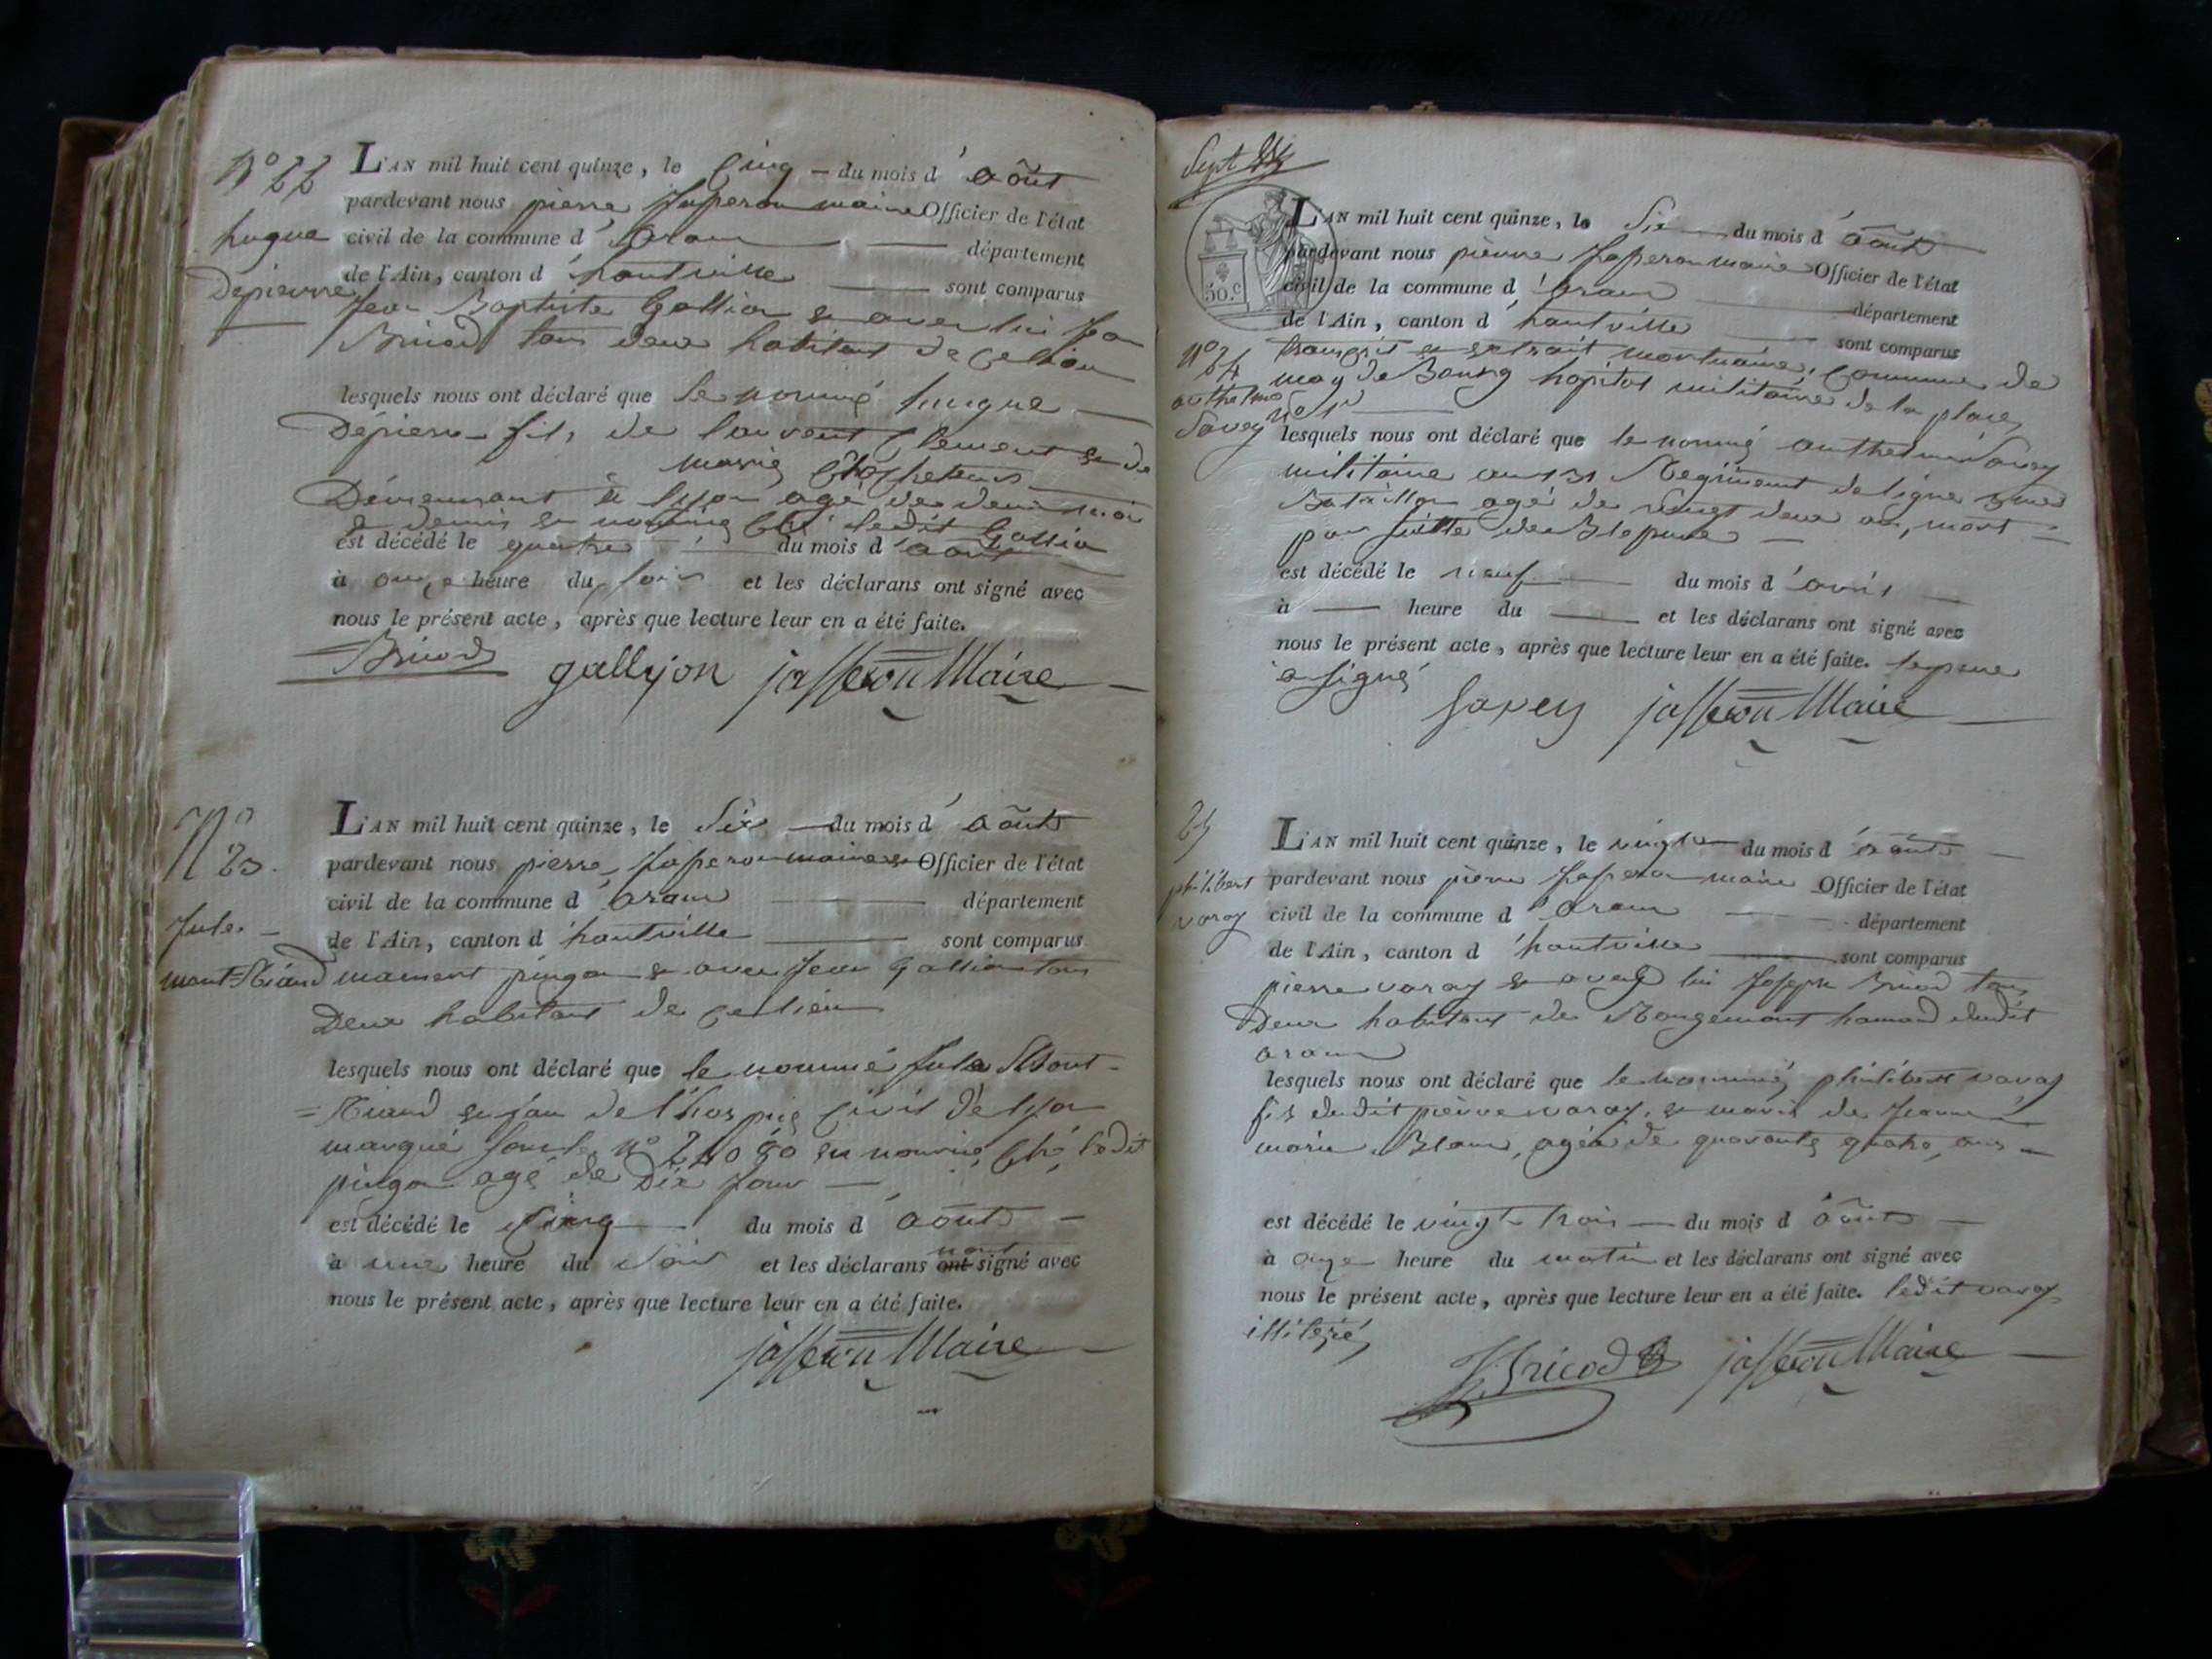 N° 22
hugue
Depierre
L'AN mil huit cent quinze, le Cinq du mois d'Août
pardevant nous pierre Jasseron maire Officier de l'état
civil de la commune d'aranc département
de l'Ain, canton d'hautville sont comparus
Jean Baptiste Gallion & avec lui
Bricod tous deux habitant de
lesquels nous ont déclaré que le nommé hugue
Depierre fils de laurent Clement & de
marie
Demeurant à lyon agé de deux moi
& demis en nourrice ché ledit Gallion
est décédé le quatre du mois d'août
à onze heure du soir et les déclarans ont signé avec
nous le présent acte, après que lecture leur en a été faite.
Bricod gallyon jasseron Maire
N° 23.
Jules
mont=Riand
L'AN mil huit cent quinze, le Six du mois d'Août
pardevant nous pierre Jasseron maire & Officier de l'état
civil de la commune d'aranc département
de l'Ain, canton d'hautville sont comparus
mament pingon & avec Jean Gallion tous
Deux habitant de
lesquels nous ont déclaré que le nommé Jules Mont-
=Riand enfan de l'hospice Civil de lyon
marqué sous le n° 24080 en nourrice ché ledit
pingon agé de Dix jour
est décédé le Cinq du mois d'août
à une heure du Soir et les déclarans ont nont signé avec
nous le présent acte, après que lecture leur en a été faite.
jasseron Maire
Sept
50.c
N° 24
anthelme
Savey
L'AN mil huit cent quinze, le Six du mois d'août
pardevant nous pierre Jasseron maire Officier de l'état
civil de la commune d'aranc département
de l'Ain, canton d'hautville sont comparus
transcrit & extrait mortuaire, Commune de
may de Bourg hopital militaire de la place
lesquels nous ont déclaré que le nommé anthelme Savey
militaire au 131 Regiment de ligne 3me
Bataillon agé de vingt deux an, mort
par suitte de
est décédé le neuf du mois d'avril
à heure du et les déclarans ont signé avec
nous le présent acte, après que lecture leur en a été faite. le pere
a signé
Savey jasseron Maire
25
philibert
varay
L'AN mil huit cent quinze, le vingt du mois d'août
pardevant nous pierre Jasseron maire Officier de l'état
civil de la commune d'aranc département
de l'Ain, canton d'hautville sont comparus
pierre varay & avec lui Joseph Bricod tous
Deux habitant de Rougemont hamaud dudit
aranc
lesquels nous ont déclaré que le nommé philibert varay
fils dudit pierre varay, & maris de Jeanne
marie Blanc, agée de quarante quatre ans
est décédé le vingt trois du mois d'août
à onze heure du matin et les déclarans ont signé avec
nous le présent acte, après que lecture leur en a été faite. ledit varay
illiteré
J. Bricod jasseron Maire